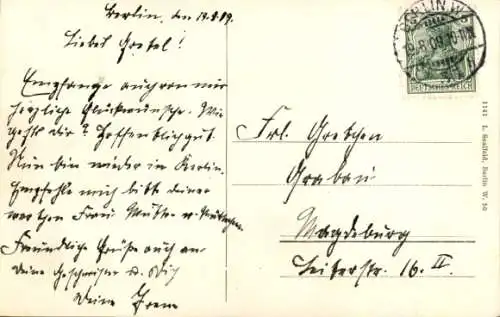 Berlin, den 19.8.09.
Liebes Gretel!
Empfange auch von mir
herzliche Glückwünsche. Wie
gehts dir? Hoffentlich gut.
Nun bin wieder in Berlin.
Empfehle mich bitte deiner
werten Frau Mutter u.
Freundliche Grüße auch an
deine Geschwister u. dich
deine Irene
BERLIN W
8.09. 10-11N
DEUTSCHES REICH
Frl. Gretchen
Grabau
Magdeburg
Leiterstr. 16. II
1141 L. Saalfeld, Berlin W. 50